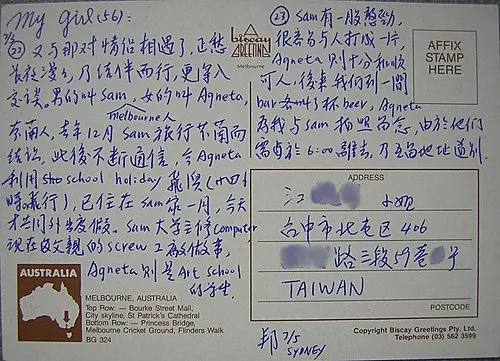 My girl (56):
7/5
(22) 又与那对情侣相遇了,正愁
长夜漫々,乃结伴而行,更深入
交谈,男的叫 Sam, 女的叫 Agneta,
Melbourne人
芬兰人,去年12月 Sam 旅行芬兰而
结识,此後不断通信,今 Agneta
利用 school holiday 飛澳(廿四小
時飛行),已住在 Sam 家一月,今天
才共同外出度假。Sam 大学主修 computer
現在父親的 screw 工廠做事,
Agneta 則是 Art school
的学生.
biscay
GREETINGS
Melbourne
(23) Sam 有一股憨劲,
很容易与人打成一片,
Agneta 則十分和順
可人,後来我们到一間
bar 各叫了杯 beer, Agneta
为我与 Sam 拍照留念,由於他们
需於 6:00 離去,乃互留地址道别.
AFFIX
STAMP
HERE
ADDRESS
江 小姐
台中市北屯区 406
路三段59巷 号
TAIWAN
POSTCODE
AUSTRALIA
MELBOURNE, AUSTRALIA
Top Row: — Bourke Street Mall,
City skyline, St Patrick's Cathedral
Bottom Row: — Princess Bridge,
Melbourne Cricket Ground, Flinders Walk
BG 324
Copyright Biscay Greetings Pty. Ltd.
Telephone (03) 562 3599
邦 7/5
SYDNEY